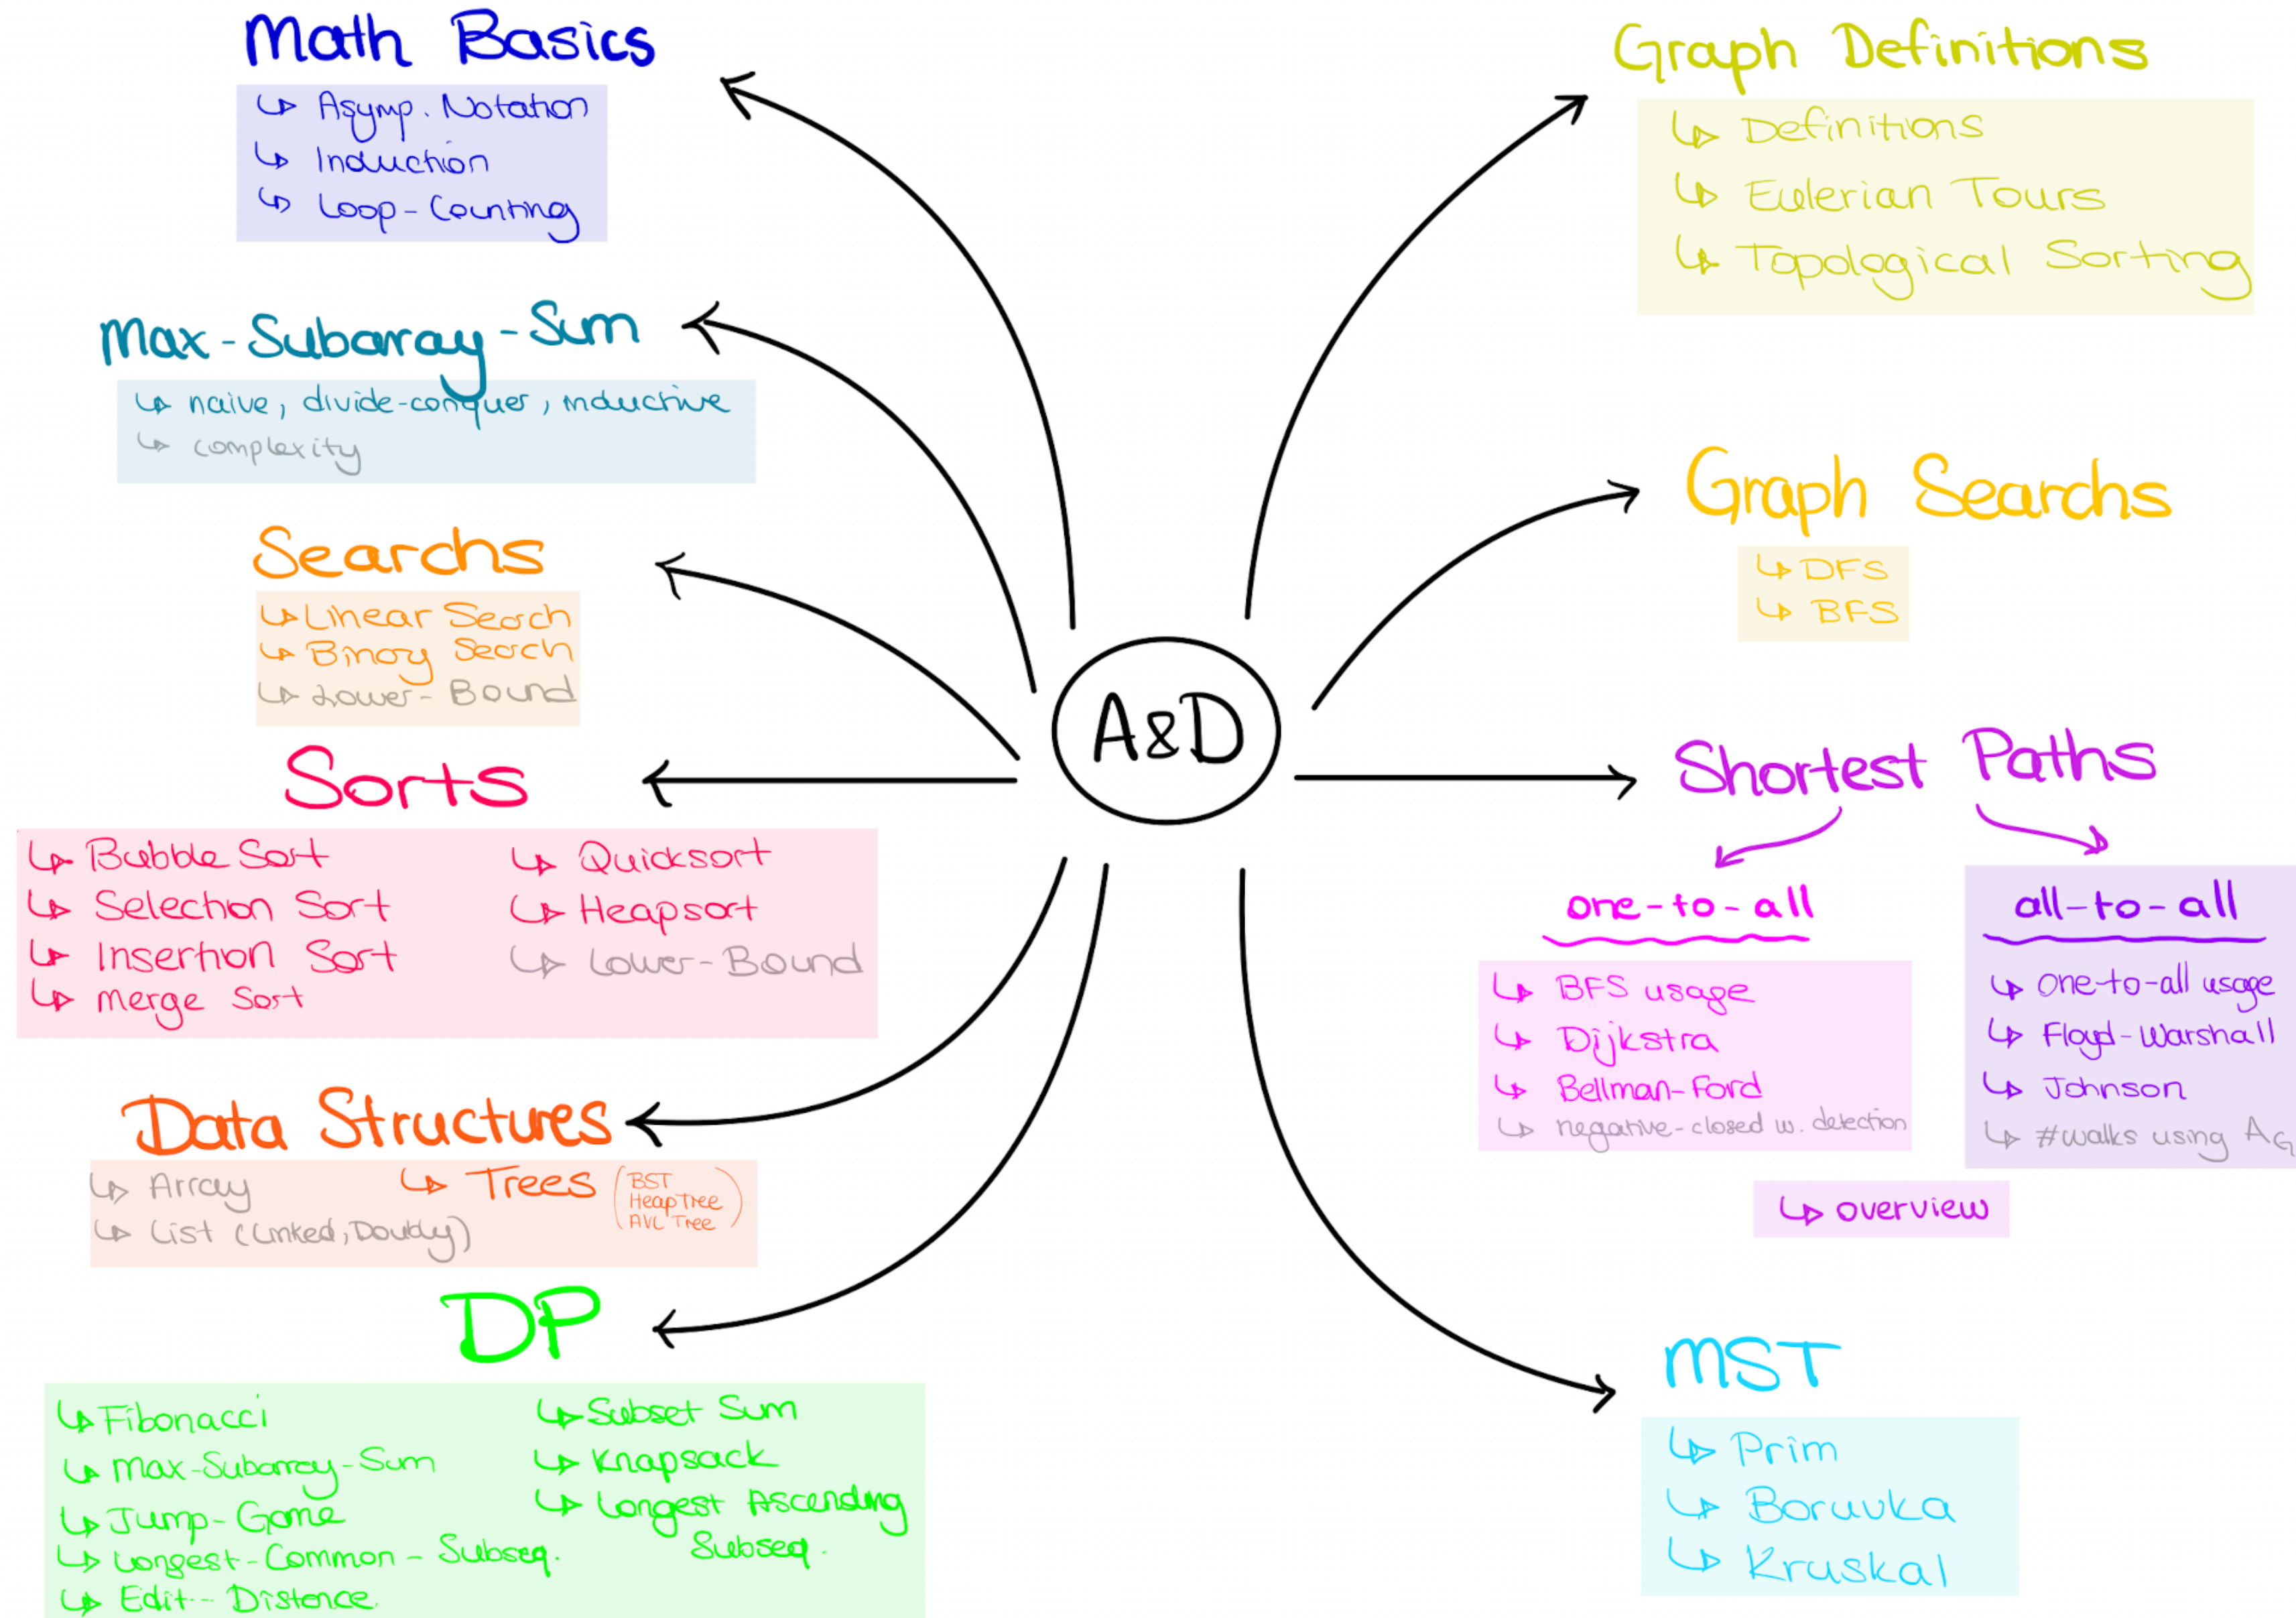 Math Basics
↳ Asymp. Notation
↳ Induction
↳ Loop-Counting
Max-Subarray-Sum
↳ naive, divide-conquer, inductive
↳ complexity
Searchs
↳ Linear Search
↳ Binary Search
↳ Lower-Bound
Sorts
↳ Bubble Sort
↳ Selection Sort
↳ Insertion Sort
↳ Merge Sort
↳ Quicksort
↳ Heapsort
↳ Lower-Bound
Data Structures
↳ Array
↳ List (Linked, Doubly)
↳ Trees (BST
HeapTree
AVL Tree)
DP
↳ Fibonacci
↳ Max-Subarray-Sum
↳ Jump-Game
↳ Longest-Common-Subseq.
↳ Edit-Distance
↳ Subset Sum
↳ Knapsack
↳ Longest Ascending
Subseq.
A&D
Graph Definitions
↳ Definitions
↳ Eulerian Tours
↳ Topological Sorting
Graph Searchs
↳ DFS
↳ BFS
Shortest Paths
one-to-all
↳ BFS usage
↳ Dijkstra
↳ Bellman-Ford
↳ negative-closed w. detection
all-to-all
↳ one-to-all usage
↳ Floyd-Warshall
↳ Johnson
↳ #walks using AG
↳ overview
MST
↳ Prim
↳ Boruvka
↳ Kruskal